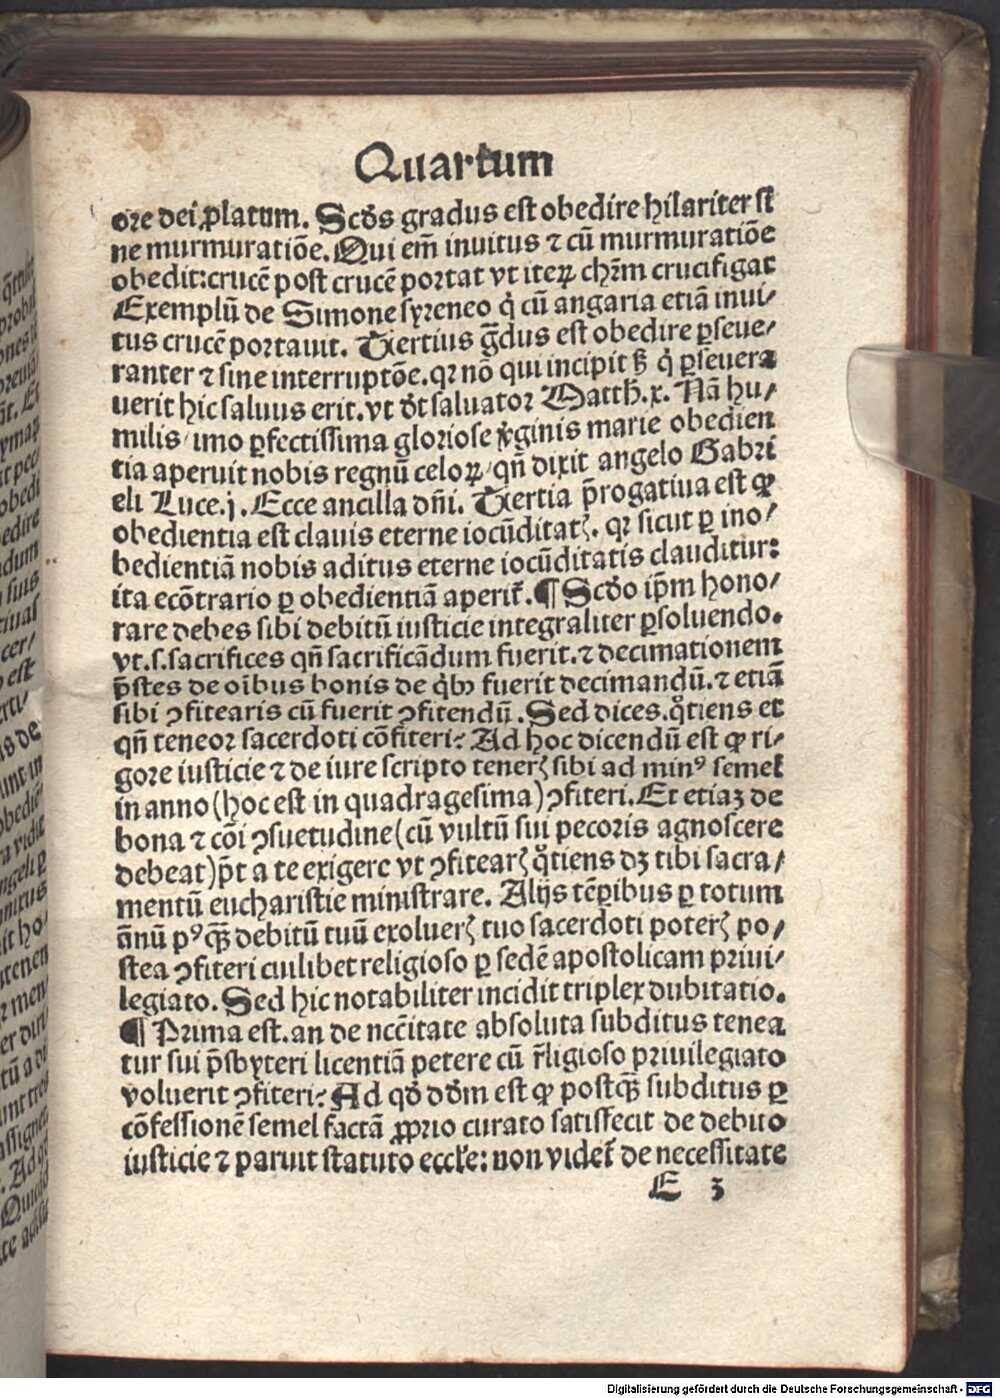 Quartum
ore dei ꝓlatum. Scḋs gradus est obedire hilariter si
ne murmuratiõe. Qui em̃ inuitus ⁊ cũ murmuratiõe
obedit: crucẽ post crucẽ portat vt iteꝝ chr̃m crucifigat
Exemplũ de Simone syreneo q̇ cũ angaria etiã inui/
tus crucẽ portauit. Tiertius g̃dus est obedire ꝑseue/
ranter ⁊ sine interruptõe. qꝛ nõ qui incipit sꝫ q̇ ꝑseuera
uerit hic saluus erit. vt ḋt saluatoꝛ Matth̃. x. Nã hu/
milis/ imo ꝑfectissima gloriose v̇ginis marie obedien
tia aperuit nobis regnũ celoꝝ/ qñ dixit angelo Gabꝛi
eli Luce. j. Ecce ancilla dñi. Tiertia p̃rogatiua est ꝙ
obedientia est clauis eterne iocũditatꝭ. qꝛ sicut ꝑ ino/
bedientiã nobis aditus eterne iocũditatis clauditur:
ita ecõtrario ꝑ obedientiã aperit᷑. ¶ Scḋo ip̃m hono/
rare debes sibi debitũ iusticie integraliter ꝑsoluendo.
vt. s. sacrifices qñ sacrificãdum fuerit. ⁊ decimationem
p̃stes de oĩbus bonis de q̇bꝫ fuerit decimandũ. ⁊ etiã
sibi ꝯfitearis cũ fuerit ꝯfitendũ. Sed dices. qͦtiens et
qñ teneoꝛ sacerdoti cõfiteri? Ad hoc dicendũ est ꝙ ri/
gore iusticie ⁊ de iure scripto tenerꝭ sibi ad minꝰ semel
in anno (hoc est in quadragesima) ꝯfiteri. Et etiaꝫ de
bona ⁊ cõi ꝯsuetudine (cũ vultũ sui pecoris agnoscere
debeat) p̃t a te exigere vt ꝯfitearꝭ qͦtiens dꝫ tibi sacra/
mentũ eucharistie ministrare. Alijs tẽꝑibus ꝑ totum
ãnũ pꝰꝙ̃ debitũ tuũ exoluerꝭ tuo sacerdoti poterꝭ po/
stea ꝯfiteri cuilibet religioso ꝑ sedẽ apostolicam pꝛiui/
legiato. Sed hic notabiliter incidit triplex dubitatio.
¶ Prima est. an de nccĩtate absoluta subditus tenea
tur sui p̃sbyteri licentiã petere cũ r̃ligioso pꝛiuilegiato
voluerit ꝯfiteri? Ad qḋ ḋḋm est ꝙ postꝙ̃ subditus ꝑ
cõfessionẽ semel factã ꝓprio curato satisfecit de debito
iusticie ⁊ paruit statuto eccl̃e: non videt᷑ de necessitate
E 3
Digitalisierung gefördert durch die Deutsche Forschungsgemeinschaft - DFG